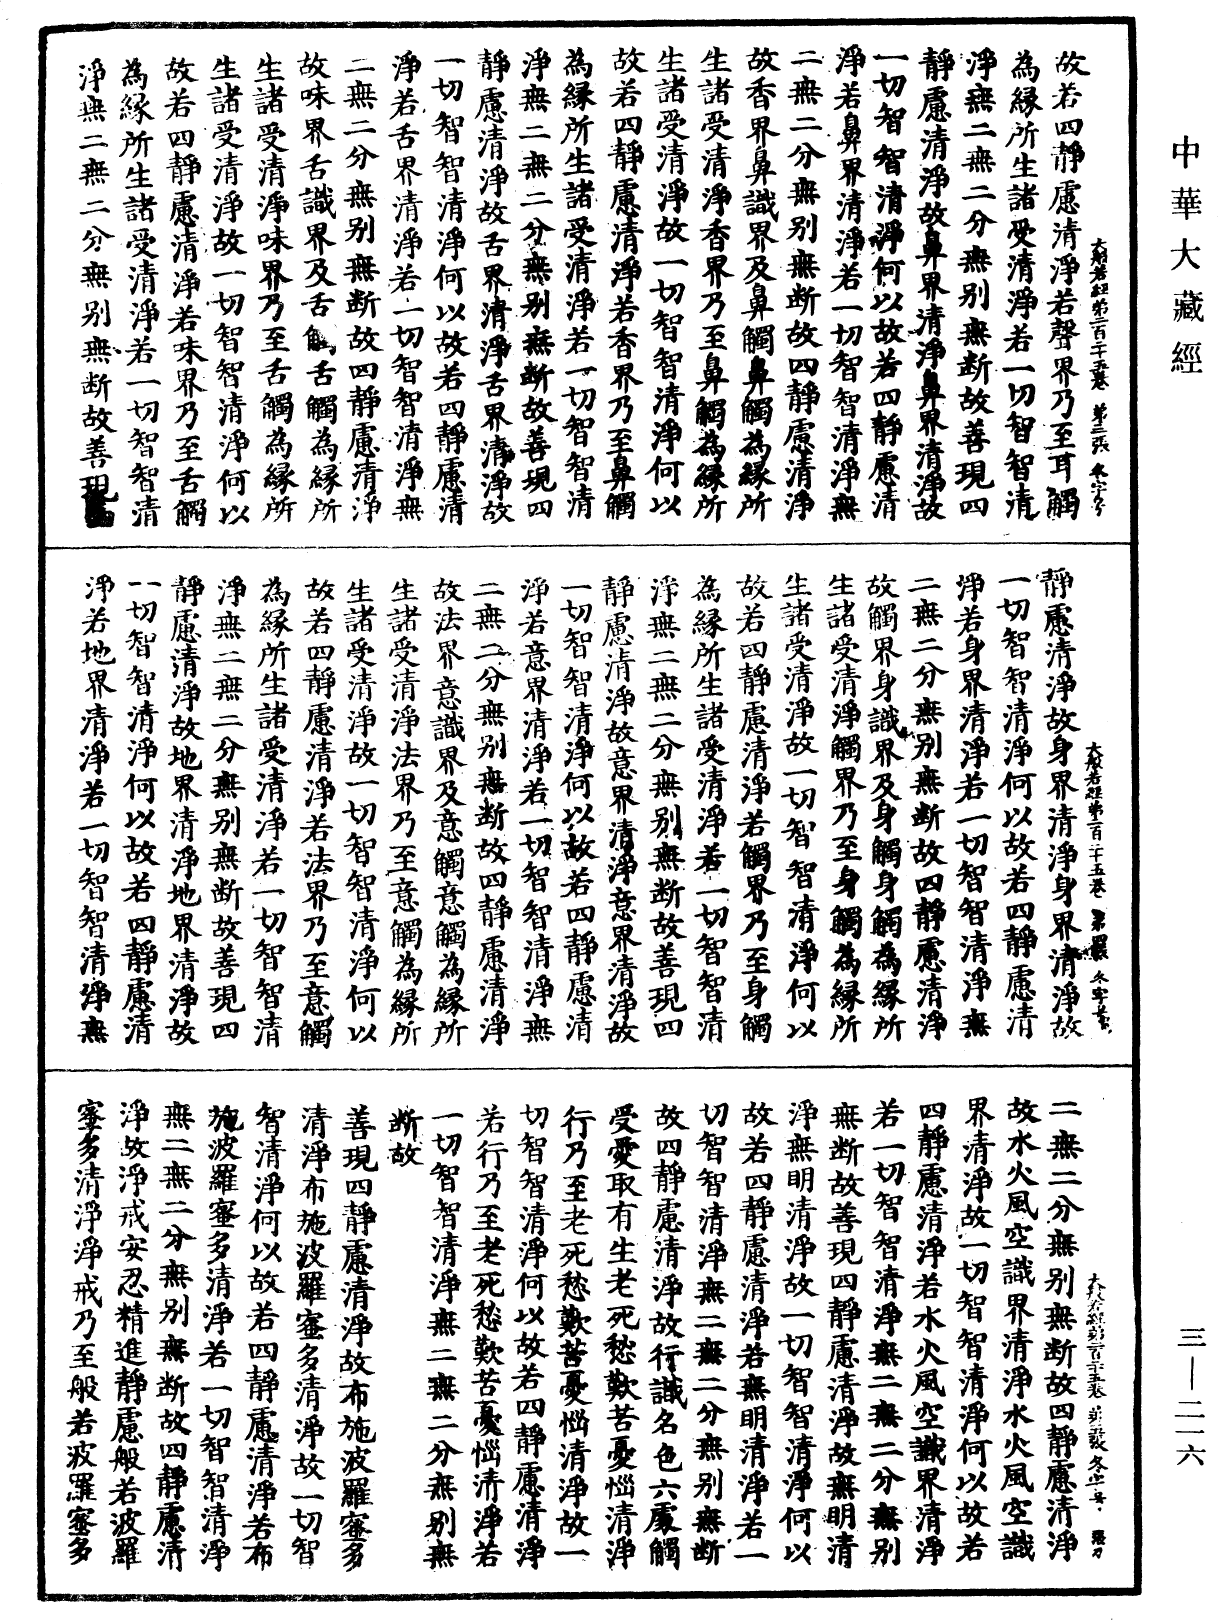 中華大藏經
故若四靜慮清淨若聲界乃至耳觸
為緣所生諸受清淨若一切智智清
淨無二無二分無別無斷故善現四
靜慮清淨故鼻界清淨鼻界清淨故
一切智智清淨何以故若四靜慮清
淨若鼻界清淨若一切智智清淨無
二無二分無別無斷故四靜慮清淨
故香界鼻識界及鼻觸鼻觸為緣所
生諸受清淨香界乃至鼻觸為緣所
生諸受清淨故一切智智清淨何以
故若四靜慮清淨若香界乃至鼻觸
為緣所生諸受清淨若一切智智清
淨無二無二分無別無斷故善現四
靜慮清淨故舌界清淨舌界清淨故
一切智智清淨何以故若四靜慮清
淨若舌界清淨若一切智智清淨無
二無二分無別無斷故四靜慮清淨
故味界舌識界及舌觸舌觸為緣所
生諸受清淨味界乃至舌觸為緣所
生諸受清淨故一切智智清淨何以
故若四靜慮清淨若味界乃至舌觸
為緣所生諸受清淨若一切智智清
淨無二無二分無別無斷故善現四
大般若經第二百二十五卷 第三張 冬字号
靜慮清淨故身界清淨身界清淨故
一切智智清淨何以故若四靜慮清
淨若身界清淨若一切智智清淨無
二無二分無別無斷故四靜慮清淨
故觸界身識界及身觸身觸為緣所
生諸受清淨觸界乃至身觸為緣所
生諸受清淨故一切智智清淨何以
故若四靜慮清淨若觸界乃至身觸
為緣所生諸受清淨若一切智智清
淨無二無二分無別無斷故善現四
靜慮清淨故意界清淨意界清淨故
一切智智清淨何以故若四靜慮清
淨若意界清淨若一切智智清淨無
二無二分無別無斷故四靜慮清淨
故法界意識界及意觸意觸為緣所
生諸受清淨法界乃至意觸為緣所
生諸受清淨故一切智智清淨何以
故若四靜慮清淨若法界乃至意觸
為緣所生諸受清淨若一切智智清
淨無二無二分無別無斷故善現四
靜慮清淨故地界清淨地界清淨故
一切智智清淨何以故若四靜慮清
淨若地界清淨若一切智智清淨無
大般若經第二百二十五卷 第四張 冬字号
二無二分無別無斷故四靜慮清淨
故水火風空識界清淨水火風空識
界清淨故一切智智清淨何以故若
四靜慮清淨若水火風空識界清淨
若一切智智清淨無二無二分無別
無斷故善現四靜慮清淨故無明清
淨無明清淨故一切智智清淨何以
故若四靜慮清淨若無明清淨若一
切智智清淨無二無二分無別無斷
故四靜慮清淨故行識名色六處觸
受愛取有生老死愁歎苦憂惱清淨
行乃至老死愁歎苦憂惱清淨故一
切智智清淨何以故若四靜慮清淨
若行乃至老死愁歎苦憂惱清淨若
一切智智清淨無二無二分無別無
斷故
善現四靜慮清淨故布施波羅蜜多
清淨布施波羅蜜多清淨故一切智
智清淨何以故若四靜慮清淨若布
施波羅蜜多清淨若一切智智清淨
無二無二分無別無斷故四靜慮清
淨故淨戒安忍精進靜慮般若波羅
蜜多清淨淨戒乃至般若波羅蜜多
大般若經第二百二十五卷
三—二一六